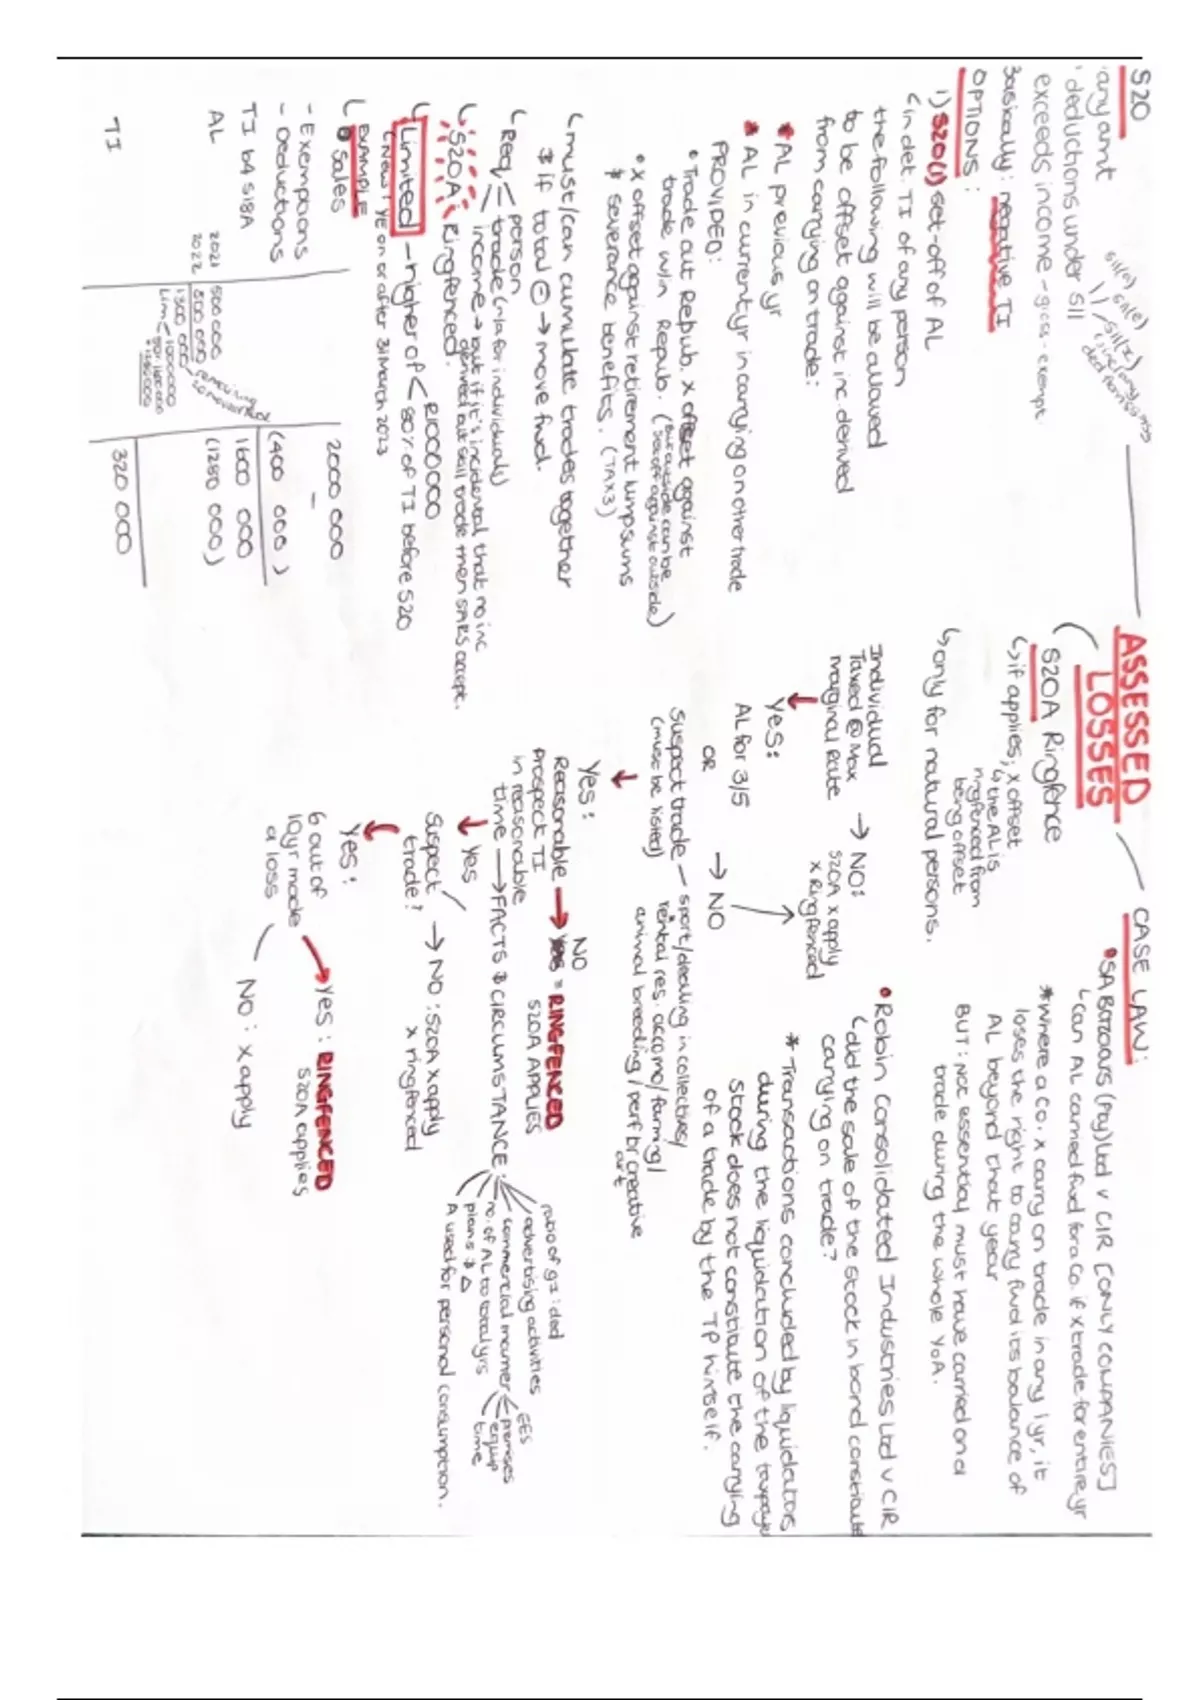 ASSESSED
LOSSES
S20
any amt
deductions under S11
exceeds income - gross - exempt
S11(a)
S11(e)
S11(x)
Basically: negative TI
OPTIONS:
1) S20(1) set-off of AL
in det. TI of any person
the following will be allowed
to be offset against inc derived
from carrying on trade:
* AL previous yr
* AL in current yr in carrying on other trade
PROVIDED:
• Trade out Repub. x offset against
trade w/in Repub. (But outside can be
set off against outside)
• x offset against retirement lumpsums
& severance benefits. (TAX3)
must/can cumulate trades together
& if total ⊖ → move fwd.
Req < person
trade (n/a for individuals)
income → but if it's incidental that no inc
derived but still trade then SARS accept.
S20A: Ringfenced.
Limited - higher of < R1000 000
80% of TI before S20
New! YE on or after 31 March 2023
EXAMPLE
Sales 2000 000
- Exemptions -
- Deductions (400 000)
TI b4 S18A 1600 000
AL (1280 000)
2021 500 000
2022 800 000
1300 000
Lim < 1000000
80% · 1600 000
= 1280 000
TI 320 000
S20A Ringfence
if applies; x offset
the AL is
ringfenced from
being offset
only for natural persons.
Individual
Taxed @ Max
marginal Rate
→ NO:
S20A x apply
x Ringfenced
Yes:
AL for 3/5
OR
→ NO
Suspect trade - sport/dealing in collectives/
(must be listed) rental res. accomo/farming/
animal breeding/perf or creative
art
Yes:
Reasonable → NO = RINGFENCED
prospect TI S20A APPLIES
in reasonable
time → FACTS & CIRCUMSTANCE:
ratio of gi : ded
advertising activities
commercial manner < EES
premises
equip
time
no. of AL to total yrs
plans & Δ
A used for personal consumption.
Yes
Suspect
trade?
→ NO: S20A x apply
x ringfenced
Yes:
6 out of
10yr made
a loss
Yes: RINGFENCED
S20A applies
NO: x apply
CASE LAW:
• SA Bazaars (Pty) Ltd v CIR [ONLY COMPANIES]
can AL carried fwd for a Co. if x trade for entire yr
* Where a co. x carry on trade in any 1 yr, it
loses the right to carry fwd its balance of
AL beyond that year
BUT: Not essential must have carried on a
trade during the whole YoA.
• Robin Consolidated Industries Ltd v CIR
did the sale of the stock in bond constitute
carrying on trade?
* Transactions concluded by liquidators
during the liquidation of the taxpayer
stock does not constitute the carrying
of a trade by the TP himself.